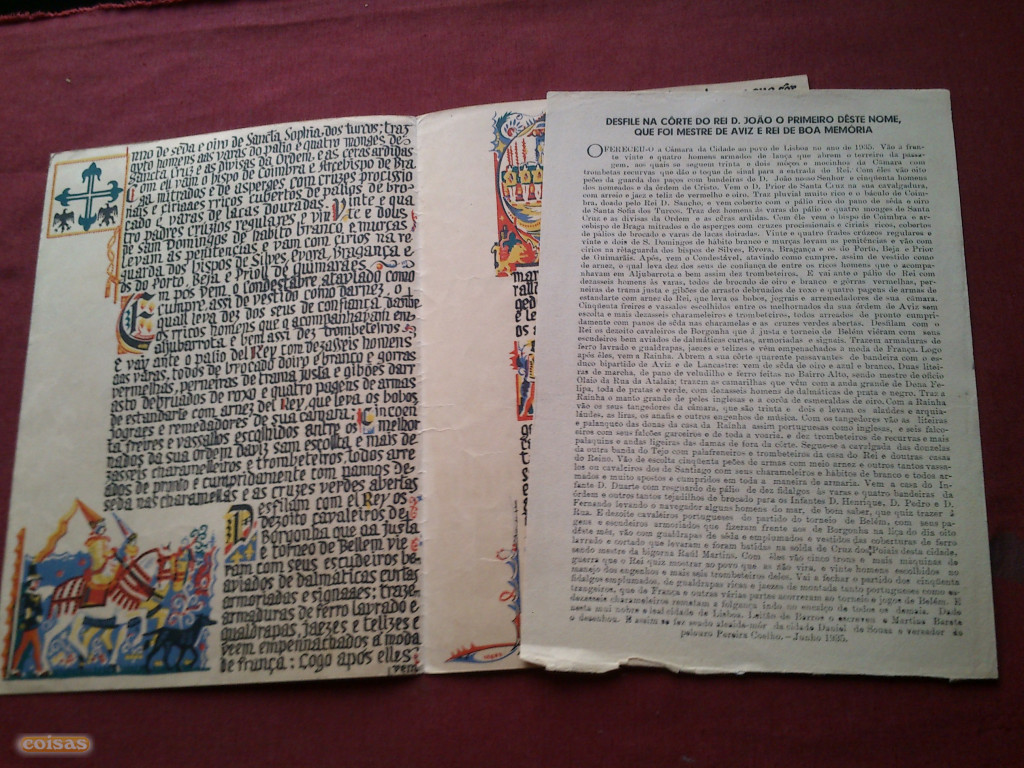 nno de sêda e oiro de Sancta Sophia, dos turcos: traz
dez homens aas varas do palio e quatro monges de
Sancta Cruz e as divisas da Ordem, e as ceras ardidas
Com ell vam o bispo de Coimbra e arcebispo de Bra
ga mitrados e de asperges com cruzes processio
nais e ciriales rricos cubertos de pallios de bro-
cado e varas de lacas douradas. Vinte e qua
tro padres cruzios regulares e vinte e dous
de sam Domingos de habito branco e murças
levam as penitencias e vam com cirios na re
guarda dos bispos de Silves, Evora, Bragança e
os do Porto, Beja, e Prioll de Guimarães.
Em pos vem o condestabre ataviado como
cumpre, assi de vestido como darnez, o
quall leva dez dos seus de confiança dantre
os rricos homens que o acompanhavam en-
aljubarrota e bem assi dez trombeteiros
E vaj ante o palio del Rey com dezasseis homens
aas varas, todos de brocado ouro e branco e gorras
vermelhas, perneiras de trama justa e gibões darr
asto debruados de roxo e quatro pagens de armas
de estandarte com arnez del Rey que leva os bobos
jograes e remedadores de sua camara: Cincoen
ta freires e vassallos escolhidos antre os melhor
nados da sua ordem daviz sam escolta e mais de-
zasseis charamelleiros e trombeteiros, todos arre
ados de pronto e cumpridamente com pannos de-
seda nas charamellas e as cruzes verdes abertas
Desfilam com el Rey os
dezoito cavaleiros de
Borgonha que aa justa
e torneo de Bellem vie
ram com seus escudeiros be
aviados de dalmaticas curtas
armoriadas e signaaes: traze
armaduras de ferro lavrado e
gualdrapas, jaezes e telizes e
veem empennachados aa moda
de frança: Logo após elles
vem
DESFILE NA CÔRTE DO REI D. JOÃO O PRIMEIRO DÊSTE NOME,
QUE FOI MESTRE DE AVIZ E REI DE BOA MEMÓRIA
OFERECEU-O a Câmara da Cidade ao povo de Lisboa no ano de 1935. Vão à fren-
te vinte e quatro homens armados de lança que abrem o terreiro da passa-
gem, aos quais se seguem trinta e dois moços e mocinhos da Câmara com
trombetas recurvas que dão o toque de sinal para a entrada do Rei. Com êles vão oito
peões da guarda dos paços com bandeiras de D. João nosso Senhor e cinqüenta homens
dos nomeados e da órdem de Cristo. Vem o D. Prior de Santa Cruz na sua cavalgadura,
com arreos e jaez e téliz de vermelho e oiro. Traz pluvial muito rico e o báculo de Coim-
bra, doado pelo Rei D. Sancho, e vem coberto com o pálio rico do pano de sêda e oiro
de Santa Sofia dos Turcos. Traz dez homens às varas do pálio e quatro monges de Santa
Cruz e as divisas da Ordem e as cêras ardidas. Com êle vem o bispo de Coimbra e ar-
cebispo de Braga mitrados e de asperges com cruzes processionais e ciriais ricos, cobertos
de pálios de brocado e varas de lacas doiradas. Vinte e quatro frades crúzios regulares e
vinte e dois de S. Domingos de hábito branco e murças levam as penitências e vão com
cirios na rètaguarda dos bispos de Silves, Évora, Bragança e os do Pôrto, Beja e Prior
de Guimarãis. Após, vem o Condestável, ataviado como cumpre, assim de vestido como
de arnez, o qual leva dez dos seus de confiança de entre os ricos homens que o acompa-
nhavam em Aljubarrota e bem assim dez trombeteiros. E vai ante o pálio do Rei com
dezasseis homens às varas, todos de brocado de oiro e branco e górras vermelhas, per-
neiras de trama justa e gibões de arrasto debruados de roxo e quatro pagens de armas de
estandarte com arnez do Rei, que leva os bobos, jograis e arremedadores de sua câmara.
Cinqüenta freires e vassalos escolhidos entre os melhorados da sua órdem de Aviz sem
escolta e mais dezasseis charameleiros e trombeteiros, todos arreados de pronto cumpri-
damente com panos de sêda nas charamelas e as cruzes verdes abertas. Desfilam com o
Rei os dezoito cavaleiros de Borgonha que à justa e torneio de Belém viéram com seus
escudeiros bem aviados de dalmáticas curtas, armoriadas e signais. Trazem armaduras de
ferro lavrado e gualdrapas, jaezes e telizes e vêm empenachados à moda de França. Logo
após êles, vem a Rainha. Abrem a sua côrte quarenta passavantes de bandeira com o es-
cudo bipartido de Aviz e de Lancastre: vem de sêda de oiro e anal e branco. Duas litei-
ras de marcha, de pano de veludilho e ferro feitos no Bairro Alto, sendo mestre do ofício
Olaio da Rua da Atalaia; trazem as camarilhas que vêm com a anda grande de Dona Fe-
lipa, toda de pratas e verde, com dezasseis homens de dalmáticas de prata e negro. Traz a
Rainha o manto grande de peles inglesas e a corôa de esmeraldas de oiro. Com a Rainha
vão os seus tangedores da câmara, que são trinta e dois e levam os alaúdes e arquia-
láudes, as liras, os anafis e outros engenhos de música. Com os tangedores vão as liteiras
e palanquto das donas da casa da Rainha assim portuguesas como inglesas, e seis falco-
eiros com seus falcões garceiros e de toda a voaria, e dez trombeteiros de recurvas e mais
palaquins e andas ligeiras das damas de fora da côrte. Segue-se a cavalgada das donzelas
da outra banda do Tejo com palafreneiros e trombeteiros da casa do Rei e doutras casas
do Reino. Vão de escolta cinqüenta peões de armas com meio arnez e outros tantos vassa-
los ou cavaleiros dos de Santiago com seus charameleiros e hábitos de branco e todos ar-
mados e muito apostos e cumpridos em toda a maneira de armaria. Vem a casa do In-
fante D. Duarte com resguardo de pálio de dez fidalgos às varas e quatro bandeiras da
órdem e outros tantos tejadilhos de brocado para os Infantes D. Henrique, D. Pedro e D.
Fernando levando o navegador alguns homens do mar, de bom saber, que quiz trazer à
Rua. E dezoito cavaleiros portugueses do partido do torneio de Belém, com seus pa-
gens e escudeiros armoriados que fizeram frente aos de Borgonha na liça do dia oito
dêste mês, vão com gualdrapas de sêda e emplumados e vestidos das coberturas de ferro
lavrado e cortado que levaram e foram batidas na solda de Cruz dos Poiais desta cidade,
sendo mestre da bigorna Raúl Martins. Com êles vão cinco trons e mais máquinas de
guerra que o Rei quiz mostrar ao povo que as não vira, e vinte homens escolhidos no
manejo dos engenhos e mais seis trombeteiros deles. Vai a fechar o partido dos cinqüenta
fidalgos emplumados, de gualdrapas ricas e jaezes de montada tanto portugueses como es-
trangeiros, que de França e outras várias partes acorreram ao torneio e jogos de Belém. E
dezasseis charameleiros rematam a folgança indo no encalço de todos os demais. Dado
nesta mui nobre e leal cidade de Lisboa. Leitão de Barros o escreveu e Martins Barata
o desenhou. E assim se fez sendo alcaide-mór da cidade Daniel de Sousa e vereador do
pelouro Pereira Coelho. — Junho 1935.
coisas